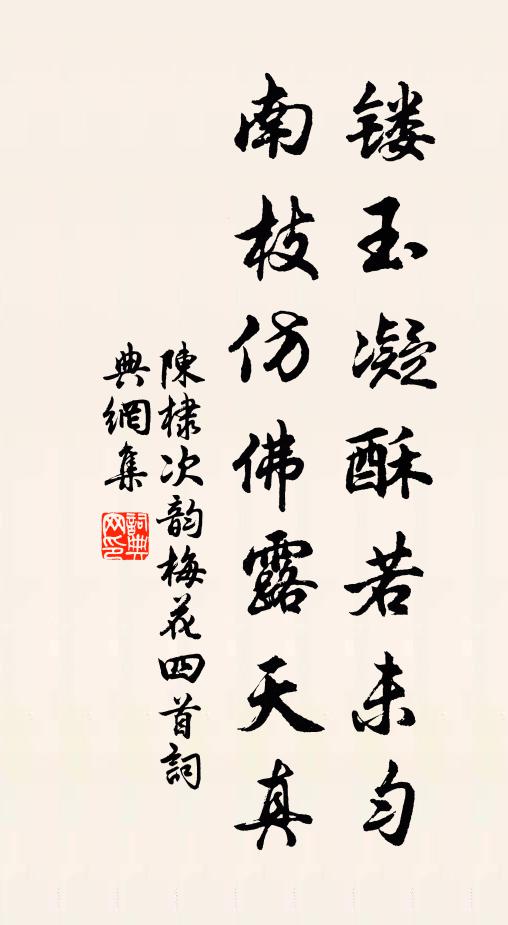 镂玉凝酥若未匀
南枝仿佛露天真
陳棣次韵梅花四首詞
典網集
詞典網印